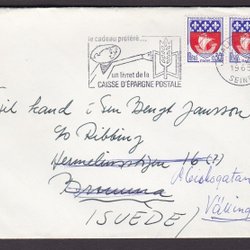 le cadeau préféré...
un livret de la
CAISSE D'ÉPARGNE POSTALE
196
SEIN
fil kand i Sten Bengt Jansson
c/o Ribbing
Hermelinsstigen 16 (?)
Bromma
(SUEDE)
Meiselsgatan
Välling